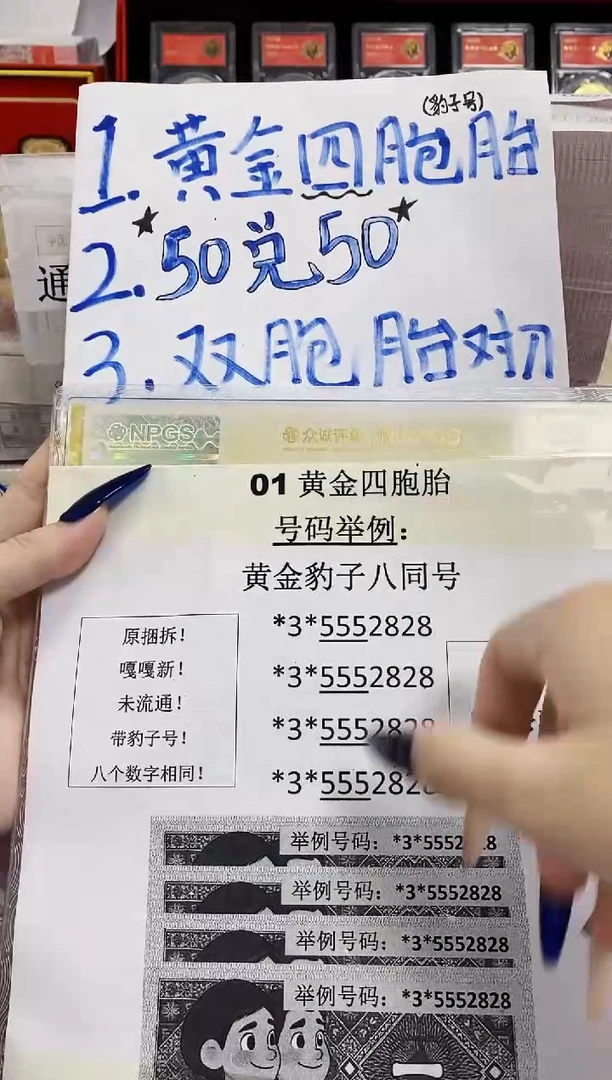 (豹子号)
1.黄金四胞胎
2.50兑50
通
3.双胞胎对
NPGS
众诚评级
01 黄金四胞胎
号码举例：
黄金豹子八同号
*3*5552828
*3*5552828
*3*5552828
*3*555282
原捆拆！
嘎嘎新！
未流通！
带豹子号！
八个数字相同！
举例号码：*3*5552 28
举例号码：*3*5552828
举例号码：*3*5552828
举例号码：*3*5552828